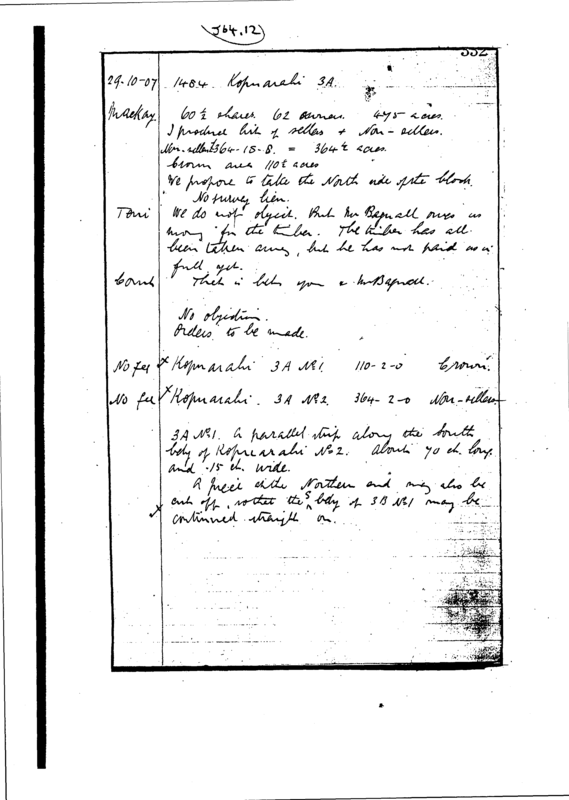 J64.12
332
29-10-07 1484. Kopuarahi 3A.
Mackay. 60½ shares. 62 owners. 475 acres.
I produce list of sellers & Non-sellers.
Non-sellers 364-15-8. = 364½ acres.
Crown area 110½ acres
We propose to take the North side of the block.
No survey lien.
Toni We do not object. But Mr Bagnall owes us
money for the timber. The timber has all
been taken away, but he has not paid us in
full yet.
Court That is betn you & Mr Bagnall.
No objection.
Orders to be made.
No fee x Kopuarahi 3A No1. 110-2-0 Crown.
No fee x Kopuarahi. 3A No2. 364-2-0 Non-sellers
3A No1. A parallel strip along the South
bdy of Kopuarahi No2. About 70 ch. long
and 15 ch. wide.
A piece at the Northern end may also be
cut off, so that the S bdy of 3B No1 may be
x continued straight on.